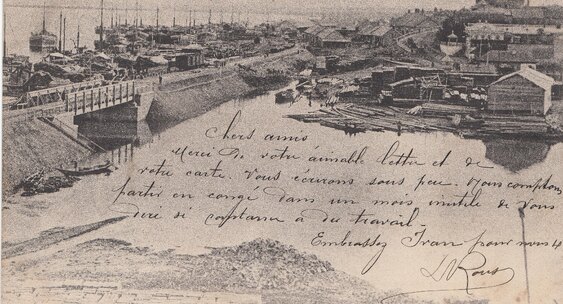 Chers amis
Merci de votre aimable lettre et de
votre carte. Vous écrirons sous peu. Nous comptons
partir en congé dans un mois inutile de vous
dire si capitaine a du travail
Embrassez Ivan pour nous 4